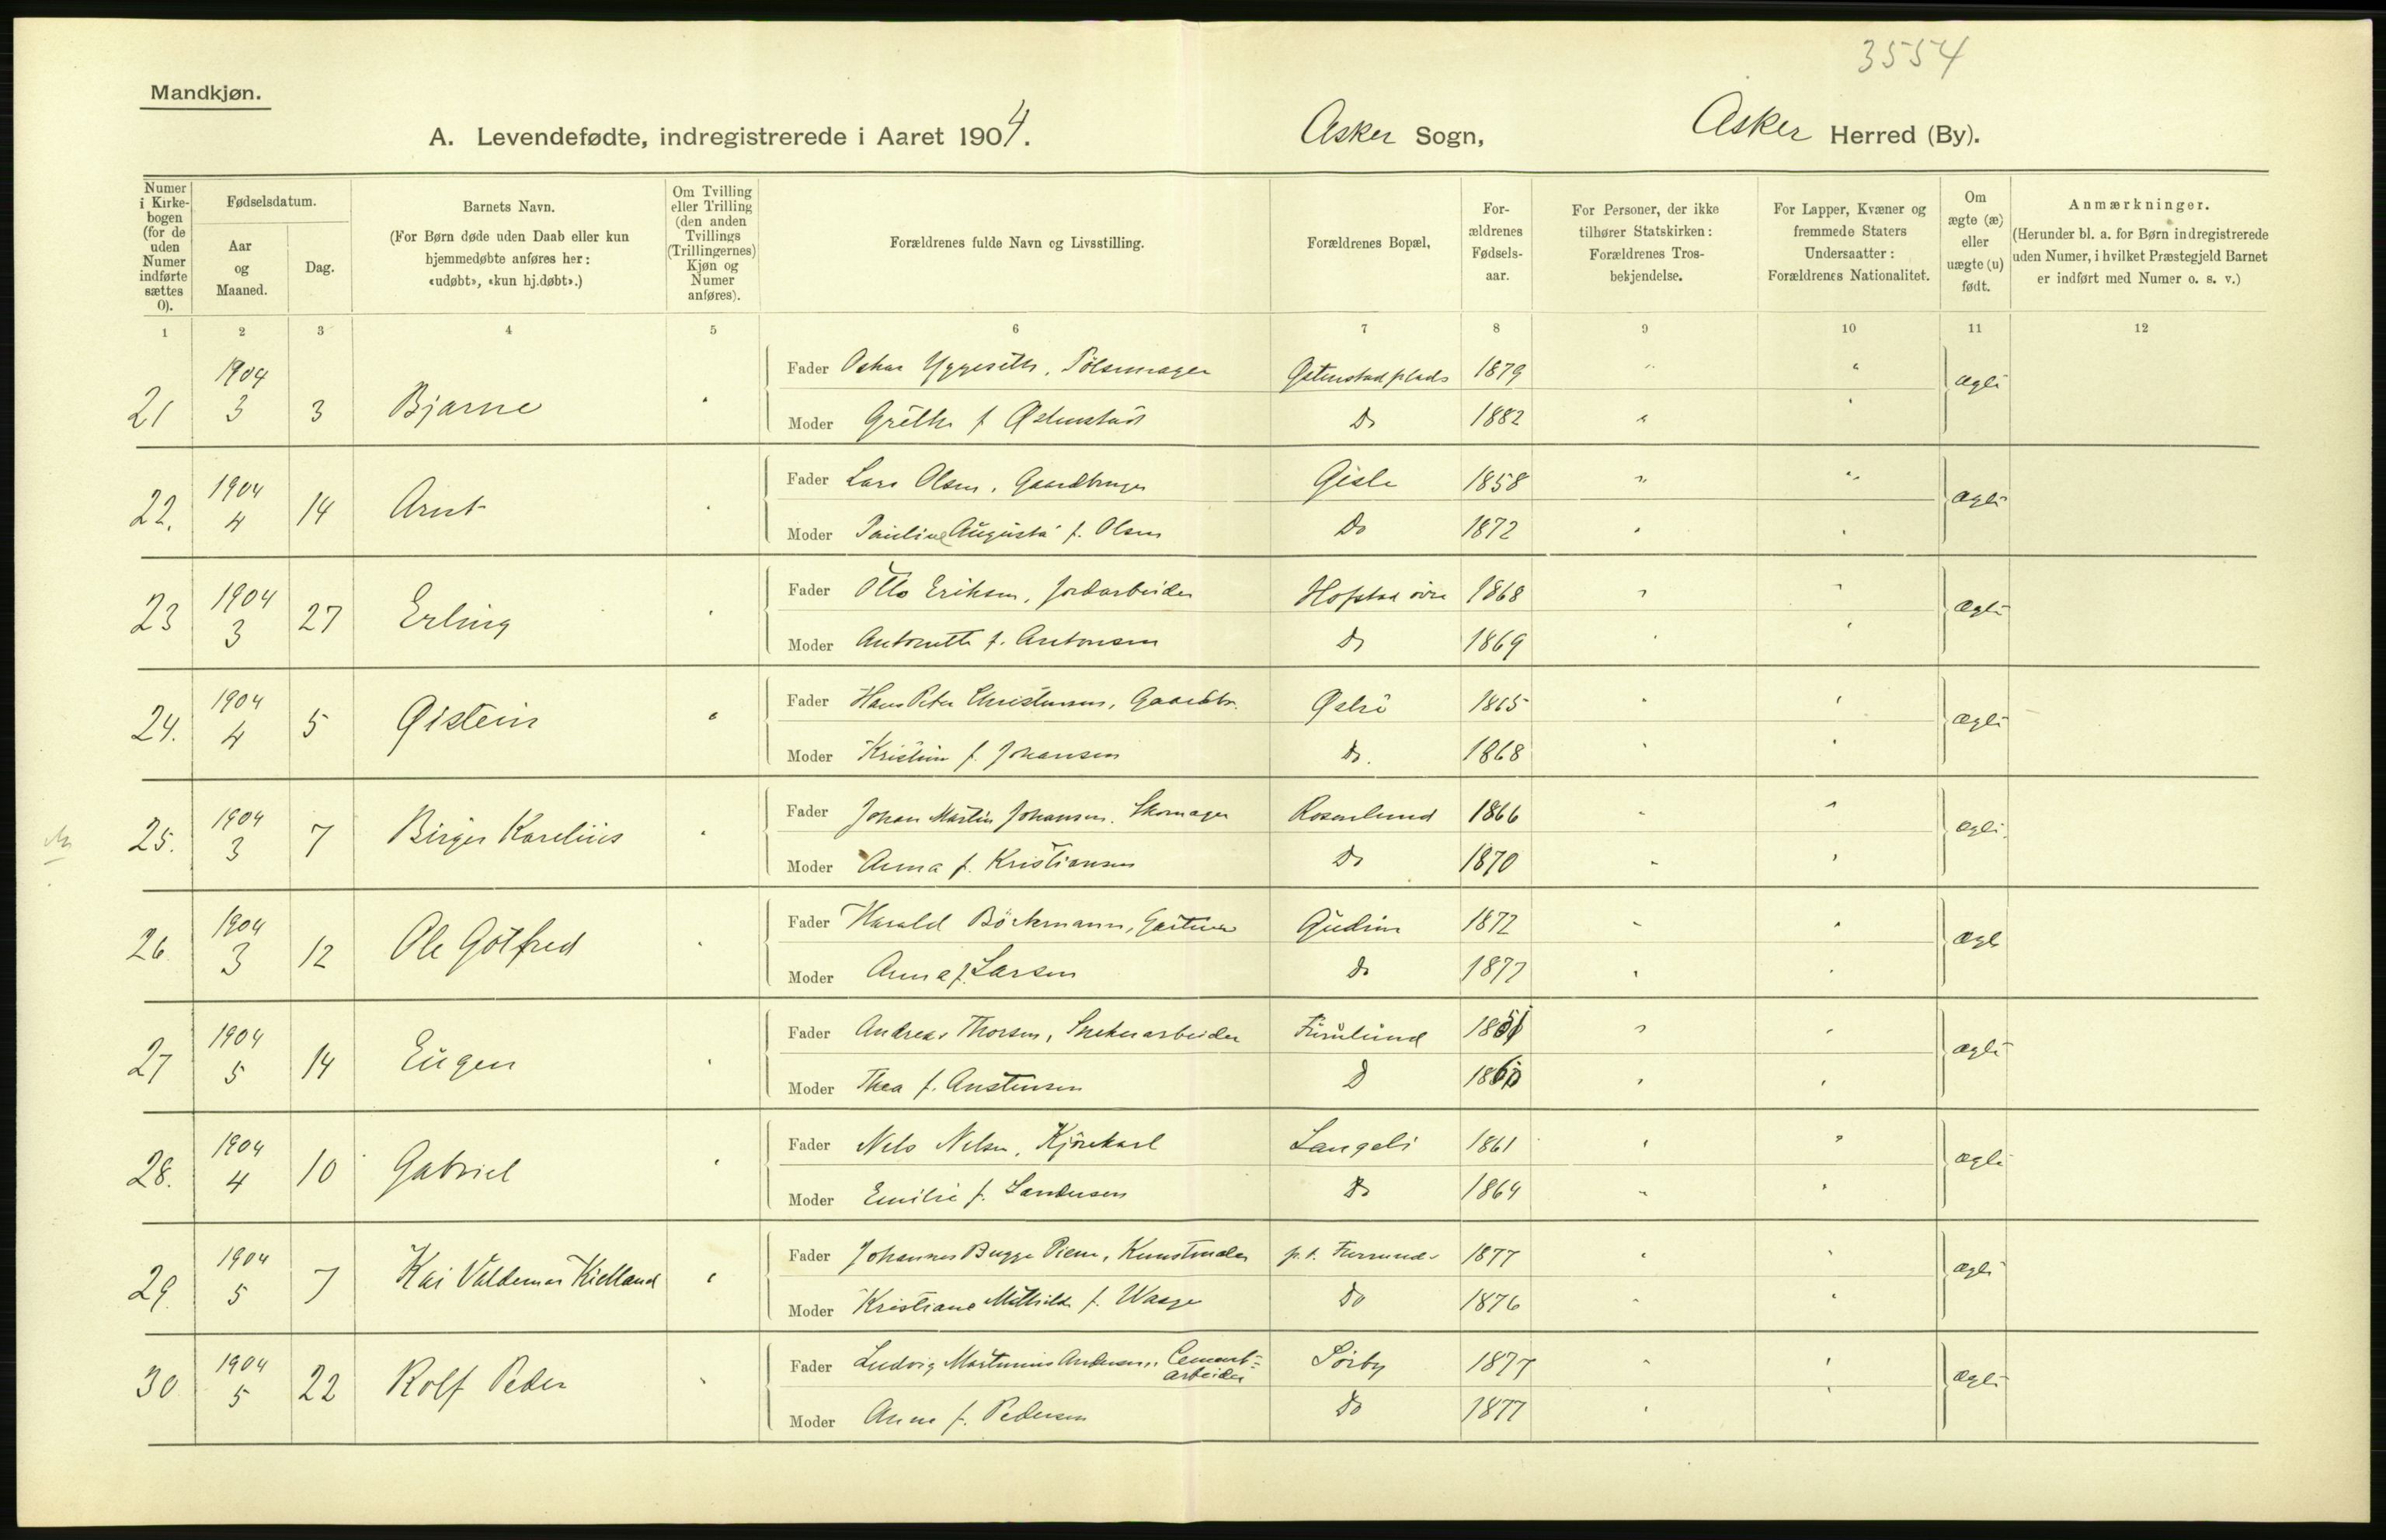 3554
Mandkjøn.
A. Levendefødte, indregistrerede i Aaret 1904. Asker Sogn, Asker Herred (By).
Numer i Kirke-bogen (for de uden Numer indførte sættes 0).
Fødselsdatum.
Aar og Maaned.
Dag.
Barnets Navn.
(For Børn døde uden Daab eller kun hjemmedøbte anføres her: «udøbt», «kun hj.døbt».)
Om Tvilling eller Trilling (den anden Tvillings (Trillingernes) Kjøn og Numer anføres).
Forældrenes fulde Navn og Livsstilling.
Forældrenes Bopæl,
For-ældrenes Fødsels-aar.
For Personer, der ikke tilhører Statskirken: Forældrenes Tros-bekjendelse.
For Lapper, Kvæner og fremmede Staters Undersaatter: Forældrenes Nationalitet.
Om ægte (æ) eller uægte (u) født.
Anmærkninger.
(Herunder bl. a. for Børn indregistrerede uden Numer, i hvilket Præstegjeld Barnet er indført med Numer o. s. v.)
1 2 3 4 5 6 7 8 9 10 11 12
21 1904 3 3 Bjarne " Fader Oskar Yggeseth, Pølsemager 1879 " " ægte
Moder f Østenstad Do 1882 " "
22. 1904 4 14 Arnt " Fader Lars Olsen, Gaardbruger Gisle 1858 " " ægte
Moder Pauline Augusta f. Olsen Do 1872 " "
23 1904 3 27 Erling " Fader Otto Eriksen, Jordarbeider Hofstad øvre 1868 " " ægte
Moder Antonette f. Antonsen Do 1869 " "
24. 1904 4 5 Øistein " Fader Hans Peter Christensen, Gaardbr. 1865 " " ægte
Moder Kristine f. Johansen Do. 1868 " "
25. 1904 3 7 Birger Karelius " Fader Johan Martin Johansen. Skomager Rosenlund 1866 " " ægte
Moder Anna f. Kristiansen Do 1870 " "
26 1904 3 12 Ole Gotfred " Fader Harald Böckmann, Gartner 1872 " " ægte
Moder Anna f. Larsen Do 1877 " "
27 1904 5 14 Eugen " Fader Andreas Thorsen, Furulund " " ægte
Moder Thea f. Anstensen D " "
28. 1904 4 10 Gabriel " Fader Nels Nelsen, Kjörekarl Langeli 1861 " " ægte
Moder Emilie f. Sandersen Do 1864 " "
29. 1904 5 7 Kai Valdemar Kielland " Fader Johannes Bugge Piene, Kunstmaler p. t. 1877 " " ægte
Moder Kristiane Mathilde f. Waage Do 1876 " "
30 1904 5 22 Rolf Peder " Fader Ludvig Martinius Andersen, Cement-
arbeider Sörby 1877 " " ægte
Moder Anne f. Pedersen Do 1877 " "